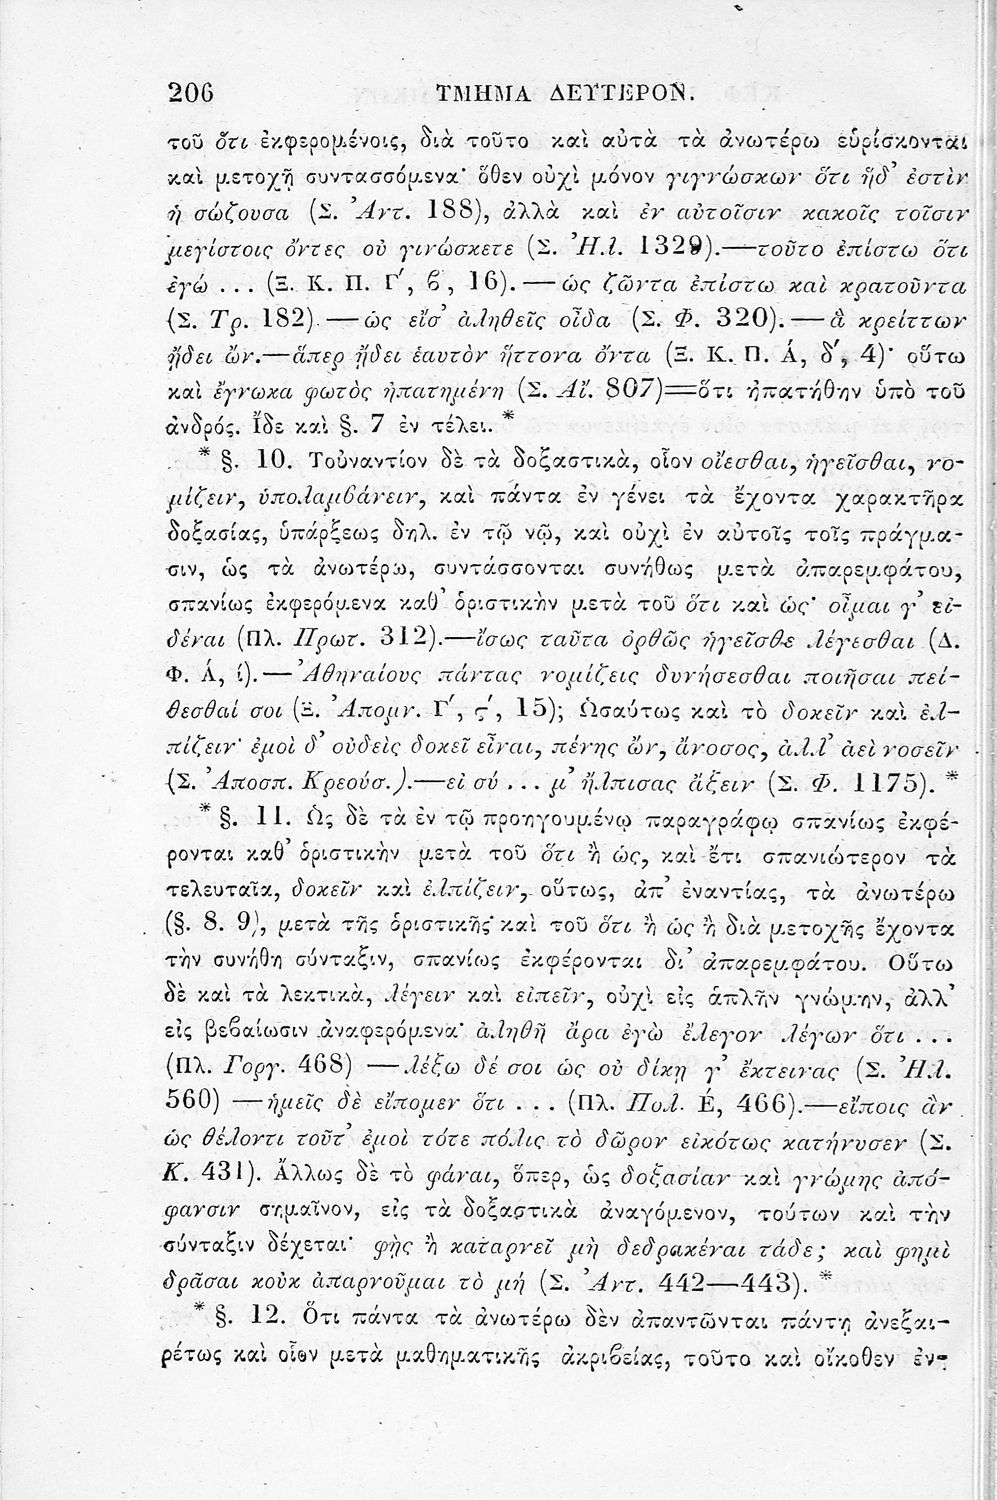 206 ΤΜΗΜΑ ΔΕΥΤΕΡΟΝ.
τοῦ ὅτι ἐκφερομένοις, διὰ τοῦτο καὶ αὐτὰ τὰ ἀνωτέρω εὑρίσκονται
καὶ μετοχῇ συντασσόμενα· ὅθεν οὐχὶ μόνον γιγνώσκων ὅτι ἥδ’ ἐστὶν
ἡ σώζουσα (Σ. Ἀντ. 188), ἀλλὰ καὶ ἐν αὐτοῖσιν κακοῖς τοῖσιν
μεγίστοις ὄντες οὐ γινώσκετε (Σ. Ἠλ. 1329).—τοῦτο ἐπίστω ὅτι
ἐγώ ... (Ξ. Κ. Π. Γ′, ϐ, 16).—ὡς ζῶντα ἐπίστω καὶ κρατοῦντα
(Σ. Τρ. 182).—ὡς εἴσ’ ἀληθεῖς οἶδα (Σ. Φ. 320).—ἃ κρείττων
ᾔδει ὤν.—ἅπερ ᾔδει ἑαυτὸν ἥττονα ὄντα (Ξ. Κ. Π. Ά, δ′, 4)· οὕτω
καὶ ἔγνωκα φωτὸς ἠπατημένη (Σ. Αἴ. 807)=ὅτι ἠπατήθην ὑπὸ τοῦ
ἀνδρός. Ἴδε καὶ §. 7 ἐν τέλει.*
* §. 10. Τοὐναντίον δὲ τὰ δοξαστικὰ, οἷον οἴεσθαι, ἡγεῖσθαι, νο-
μίζειν, ὑπολαμϐάνειν, καὶ πάντα ἐν γένει τὰ ἔχοντα χαρακτῆρα
δοξασίας, ὑπάρξεως δηλ. ἐν τῷ νῷ, καὶ οὐχὶ ἐν αὐτοῖς τοῖς πράγμα-
σιν, ὡς τὰ ἀνωτέρω, συντάσσονται συνήθως μετὰ ἀπαρεμφάτου,
σπανίως ἐκφερόμενα καθ’ ὁριστικὴν μετὰ τοῦ ὅτι καὶ ὡς· οἶμαι γ’ εἰ-
δέναι (Πλ. Πρωτ. 312).—ἴσως ταῦτα ὀρθῶς ἡγεῖσθε λέγεσθαι (Δ.
Φ. Ά, ί).—Ἀθηναίους πάντας νομίζεις δυνήσεσθαι ποιῆσαι πεί-
θεσθαί σοι (Ξ. Ἀπομν. Γ′, ϛ′, 15); Ὡσαύτως καὶ τὸ δοκεῖν καὶ ἐλ-
πίζειν· ἐμοὶ δ’ οὐδεὶς δοκεῖ εἶναι, πένης ὢν, ἄνοσος, ἀλλ’ ἀεὶ νοσεῖν
(Σ. Ἀποσπ. Κρεούσ.).—εἰ σύ ... μ’ ἤλπισας ἄξειν (Σ. Φ. 1175). *
* §. 11. Ὡς δὲ τὰ ἐν τῷ προηγουμένῳ παραγράφῳ σπανίως ἐκφέ-
ρονται καθ’ ὁριστικὴν μετὰ τοῦ ὅτι ἢ ὡς, καὶ ἔτι σπανιώτερον τὰ
τελευταῖα, δοκεῖν καὶ ἐλπίζειν, οὕτως, ἀπ’ ἐναντίας, τὰ ἀνωτέρω
(§. 8. 9), μετὰ τῆς ὁριστικῆς καὶ τοῦ ὅτι ἢ ὡς ἢ διὰ μετοχῆς ἔχοντα
τὴν συνήθη σύνταξιν, σπανίως ἐκφέρονται δι’ ἀπαρεμφάτου. Οὕτω
δὲ καὶ τὰ λεκτικὰ, λέγειν καὶ εἰπεῖν, οὐχὶ εἰς ἁπλῆν γνώμην, ἀλλ’
εἰς βεϐαίωσιν ἀναφερόμενα· ἀληθῆ ἄρα ἐγὼ ἔλεγον λέγων ὅτι ...
(Πλ. Γοργ. 468) —λέξω δέ σοι ὡς οὐ δίκῃ γ’ ἔκτεινας (Σ. Ἠλ.
560) —ἡμεῖς δὲ εἴπομεν ὅτι ... (Πλ. Πολ. Έ, 466).—εἴποις ἂν
ὡς θέλοντι τοῦτ’ ἐμοὶ τότε πόλις τὸ δῶρον εἰκότως κατήνυσεν (Σ.
Κ. 431). Ἄλλως δὲ τὸ φάναι, ὅπερ, ὡς δοξασίαν καὶ γνώμης ἀπό-
φανσιν σημαῖνον, εἰς τὰ δοξαστικὰ ἀναγόμενον, τούτων καὶ τὴν
σύνταξιν δέχεται· φῂς ἢ καταρνεῖ μὴ δεδρακέναι τάδε; καὶ φημὶ
δρᾶσαι κοὐκ ἀπαρνοῦμαι τὸ μή (Σ. Ἀντ. 442—443). *
* §. 12. Ὅτι πάντα τὰ ἀνωτέρω δὲν ἀπαντῶνται πάντῃ ἀνεξαι-
ρέτως καὶ οἷον μετὰ μαθηματικῆς ἀκριϐείας, τοῦτο καὶ οἴκοθεν ἐν-